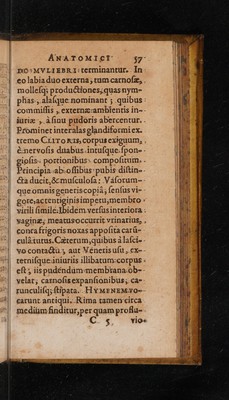 ANATOMICI 57
DO MVLIEBRI terminantur. In
eo labia duo externa, tum carnosæ,
mollesq; productiones, quas nym-
phas, alasque nominant; quibus
commissis, externæ ambientis in-
iuriæ, à sinu pudoris abercentur.
Prominet inter alas glandiformi ex-
tremo CLITORIS, corpus exiguum,
è nervosis duabus intusque spon-
giosis portionibus compositum.
Principia ab ossibus pubis distin-
cta ducit, & musculosa: Vasorum-
que omnis generis copiâ; sensus vi-
gore, ac rentiginis impetu, membro
virili simile. Ibidem versus interiora
vaginæ, meatus occurrit vrinarius,
contra frigoris noxas apposita carũ-
culâ tutus. Cæterum, quibus à lasci-
vo contactu, aut Veneris usu, ex-
ternisque iniuriis illibatum corpus
est; iis pudendum membrana ob-
velat, carnosis expansionibus, ca-
runculisq; stipata. HYMENEM vo-
carunt antiqui. Rima tamen circa
medium finditur, per quam proflu-
C 5 vio-